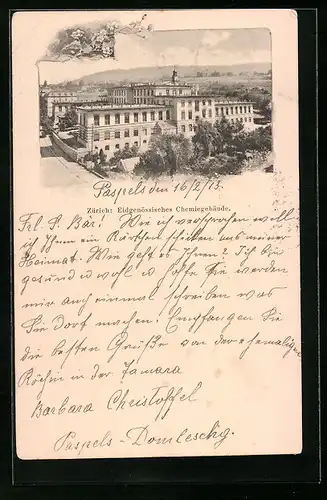 Paspels den 16/2/13.
Zürich: Eidgenössisches Chemiegebäude.
Frl. P. Bär! Wie ich versprochen will
ich Ihnen ein Kärtchen schicken aus meiner
Heimat. Wie geht es Ihnen? Ich bin
gesund u. wohl u. hoffe Sie werden
mir auch einmal schreiben was
Sie dort machen. Empfangen Sie
die besten Grüße von der ehemaligen
Köchin in der Tamara
Barbara Christoffel
Paspels - Domleschg.